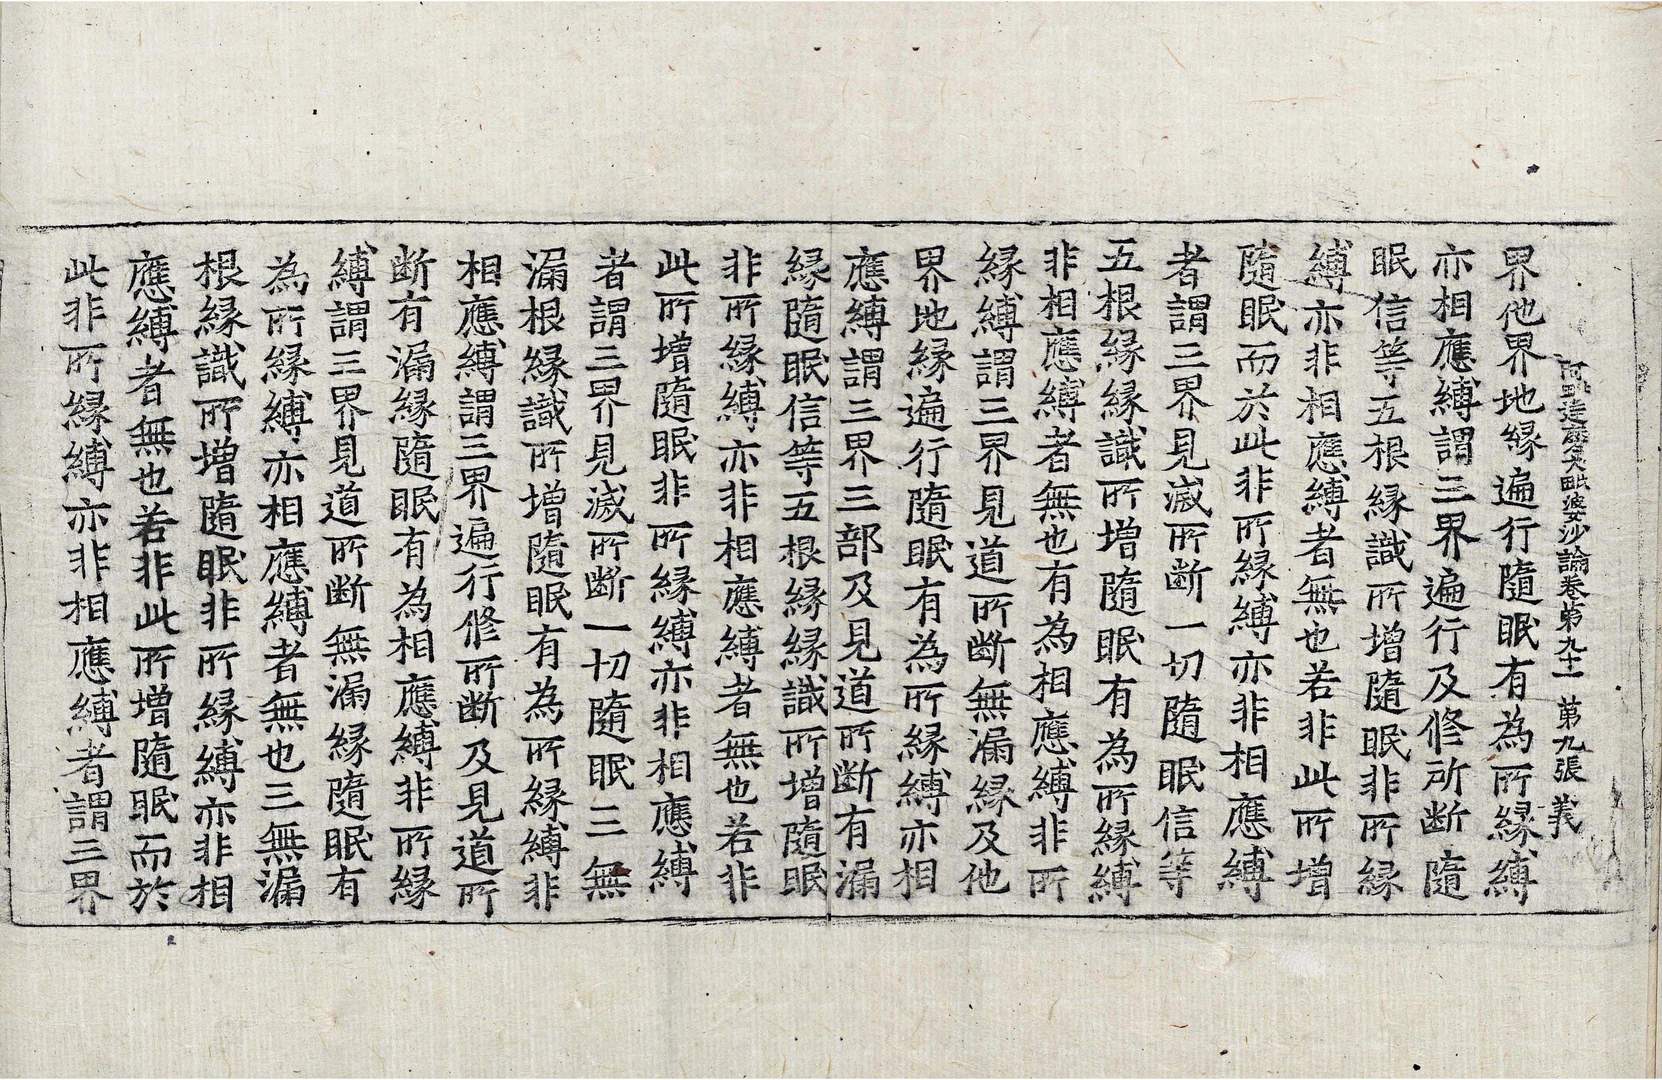 阿毗達磨大毗婆沙論卷第九十一 第九張 義
界他界地縁遍行隨眠有為所縁縛
亦相應縛謂三界遍行及修所断隨
眠信等五根縁識所增隨眠非所縁
縛亦非相應縛者無也若非此所增
隨眠而於此非所縁縛亦非相應縛
者謂三界見滅所断一切隨眠信等
五根縁縁識所增隨眠有為所縁縛
非相應縛者無也有為相應縛非所
縁縛謂三界見道所断無漏縁及他
界地縁遍行隨眠有為所縁縛亦相
應縛謂三界三部及見道所断有漏
縁隨眠信等五根縁縁識所增隨眠
非所縁縛亦非相應縛者無也若非
此所增隨眠非所縁縛亦非相應縛
者謂三界見滅所断一切隨眠三無
漏根縁識所增隨眠有為所縁縛非
相應縛謂三界遍行修所断及見道所
断有漏縁隨眠有為相應縛非所縁
縛謂三界見道所断無漏縁隨眠有
為所縁縛亦相應縛者無也三無漏
根縁識所增隨眠非所縁縛亦非相
應縛者無也若非此所增隨眠而於
此非所縁縛亦非相應縛者謂三界